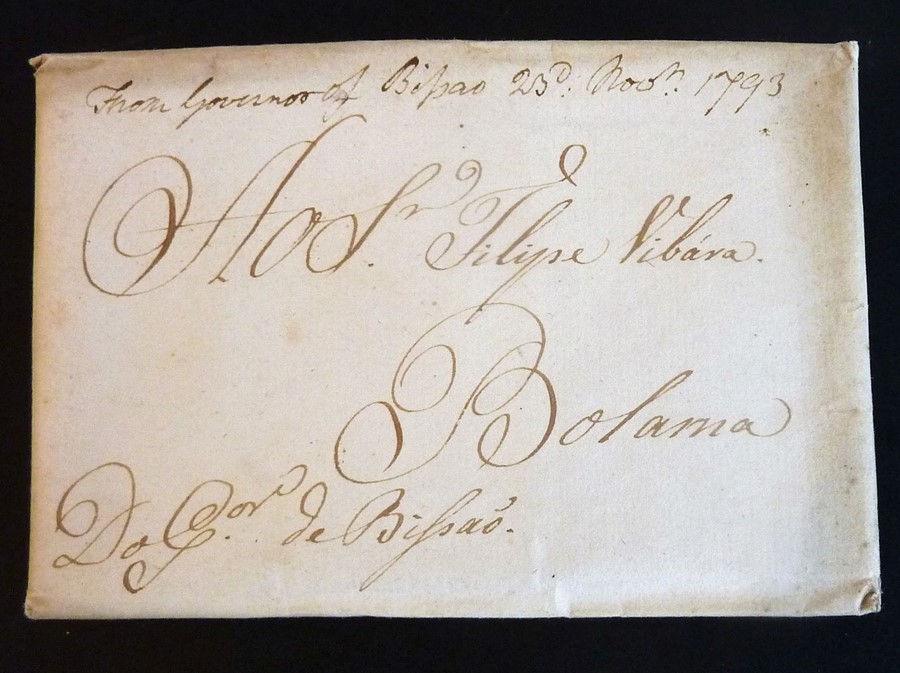 From Governor of Bißao 23d: Novr. 1793
Ao Sr. Filipe Vibára.
Bolama
Do Gor. de Bißaó.